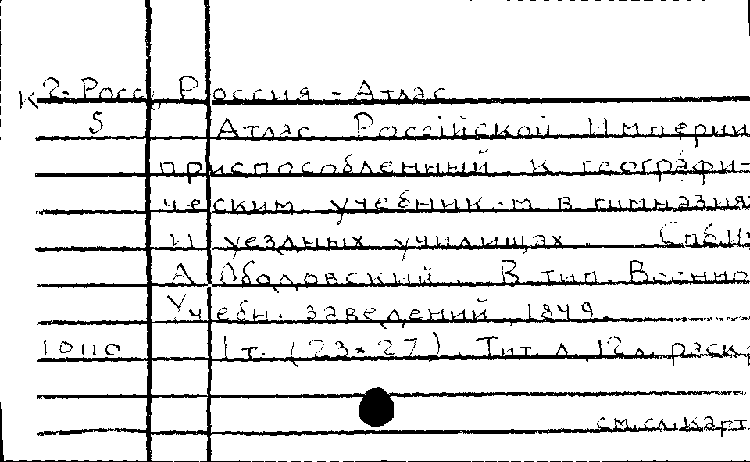 К2-Росс, Россия - Атлас
5 Атлас Россійской Империи
приспособленный к географи-
ческим учебник-м в гимназия
и уездных училищах. Спб. И
А Ободовский. В тип. Военно
Учебн. заведений, 1849.
10110 1 т. (23×27). Тит. л, 12 л. раскр
см. сл. карт